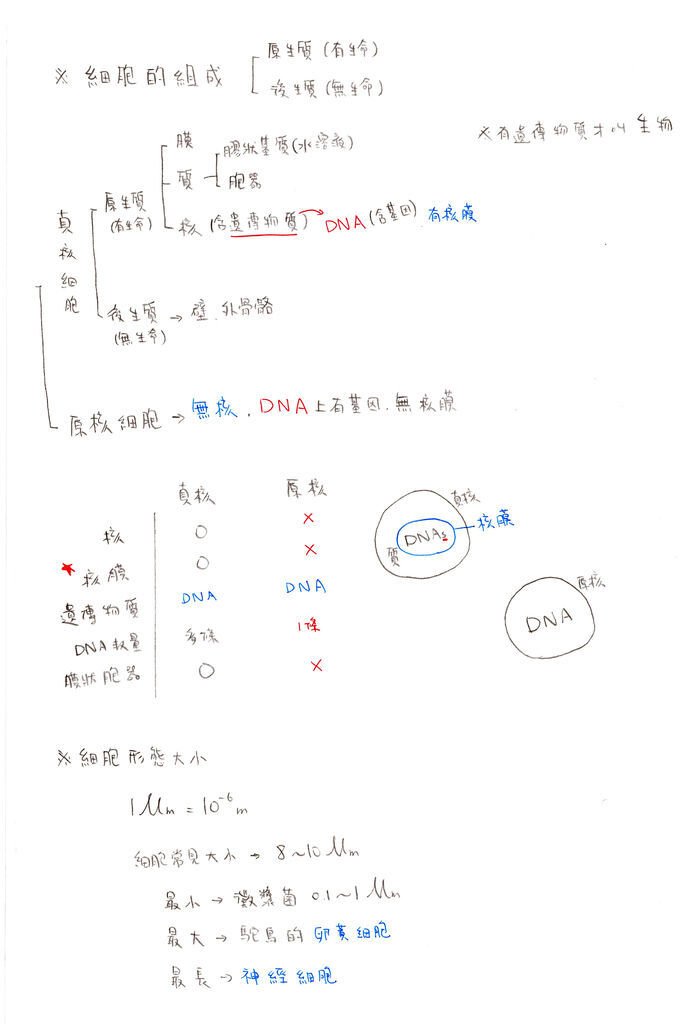 原生質(有生命)
※ 細胞的組成
後生質(無生命)
※有遺傳物質才叫生物
膜
膠狀基質(水溶液)
質
胞器
原生質
(有生命)
核(含遺傳物質)→DNA(含基因) 有核膜
真核細胞
後生質 → 壁、外骨骼
(無生命)
原核細胞 → 無核, DNA上有基因, 無核膜
真核 原核
核 ○ ×
★核膜 ○ ×
遺傳物質 DNA DNA
DNA數量 多條 1條
膜狀胞器 ○ ×
真核
核膜
DNAs
質
原核
DNA
※細胞形態大小
1μm = 10⁻⁶m
細胞常見大小 → 8~10 μm
最小 → 黴漿菌 0.1~1 μm
最大 → 鴕鳥的卵黃細胞
最長 → 神經細胞